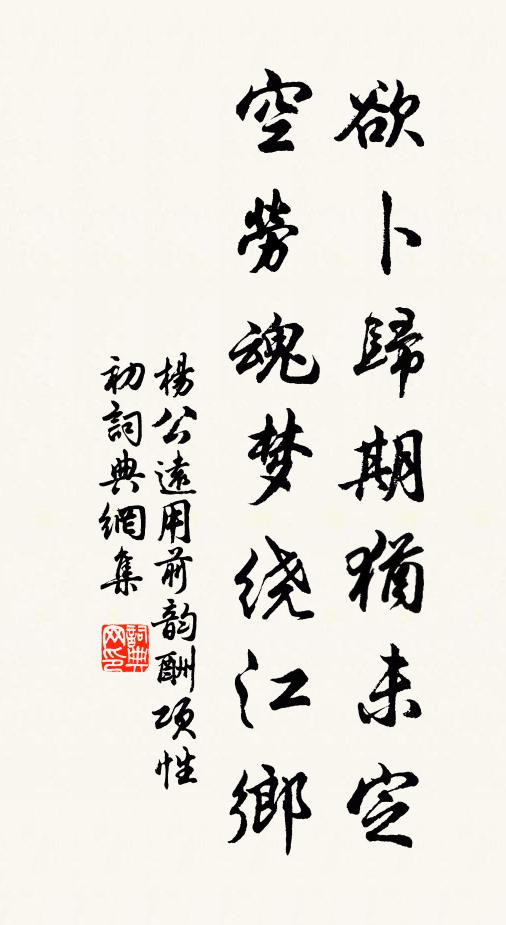 欲卜歸期猶未定
空勞魂梦绕江鄉
楊公遠用前韵酬项性
初詞典網集
詞典网印